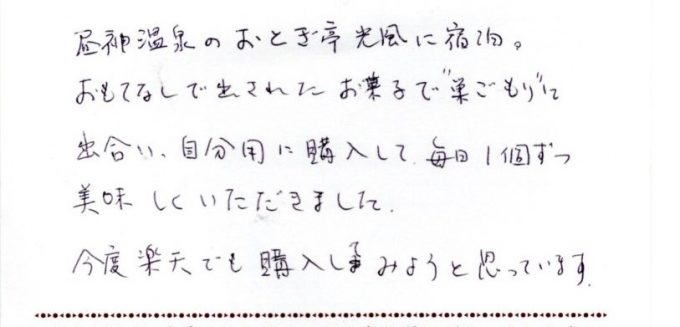 昼神温泉のおとぎ亭光風に宿泊。
おもてなしで出されたお菓子で"巣ごもり"に
出合い、自分用に購入して、毎日1個ずつ
美味しくいただきました。
今度楽天でも購入してみようと思っています。